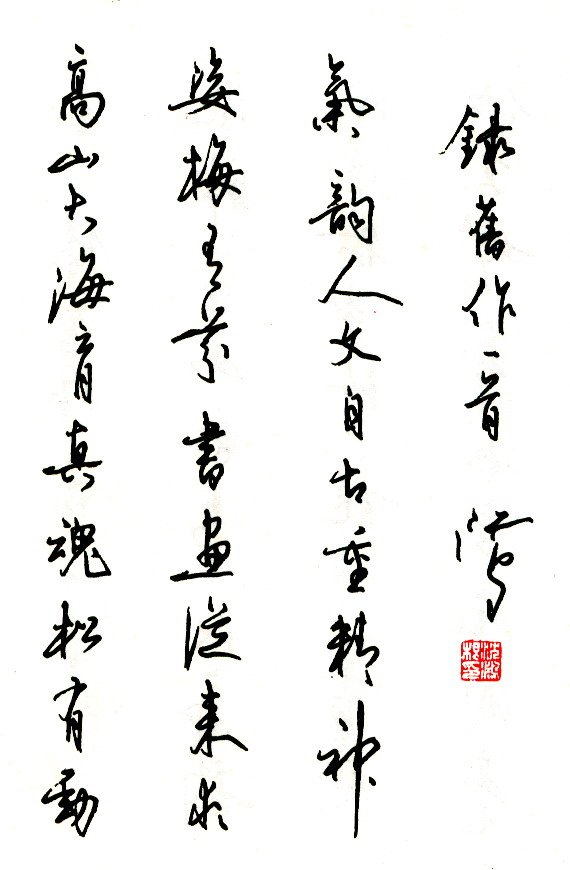 高山大海育真魂松有勁
姿梅有芬書畫從來求
氣韻人文自古重精神
錄舊作一首